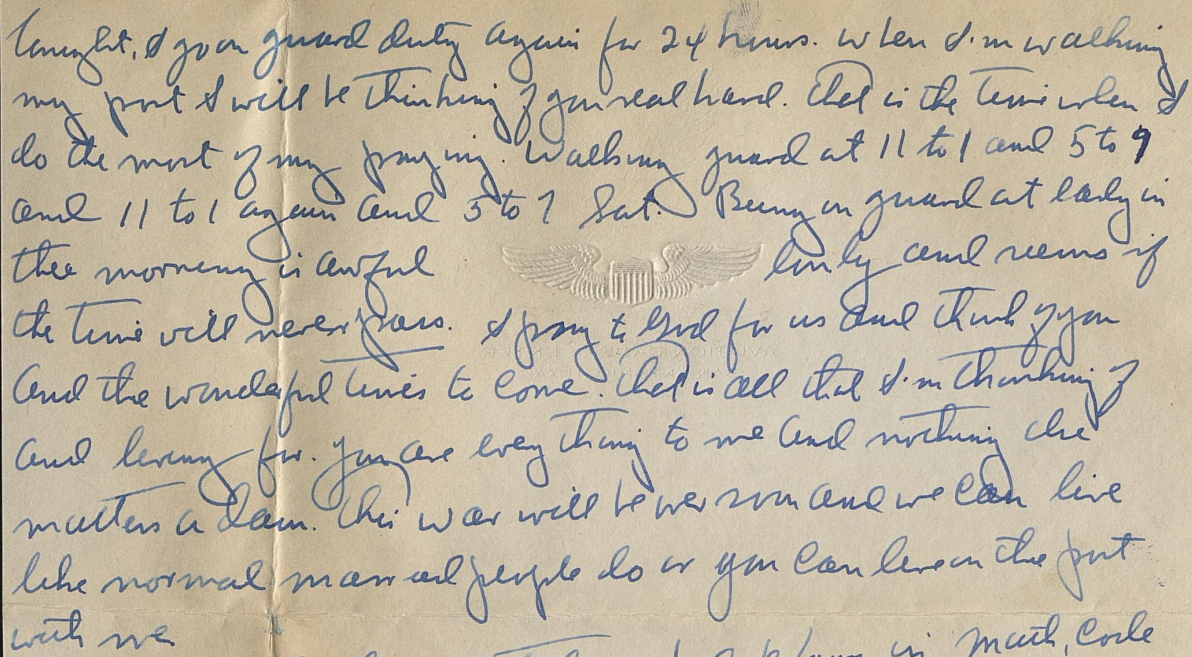 tonight, I go on guard duty again for 24 hours. When I'm walking
my post I will be thinking of you real hard. That is the time when I
do the most of my praying. Walking guard at 11 to 1 and 5 to 9
and 11 to 1 again and 5 to 7 Sat. Being on guard at early in
the morning is awful lonly and seems if
the time will never pass. I pray to God for us and think of you
and the wonderful times to come. That is all that I'm thinking of
and living for. You are everything to me and nothing else
matters a dam. This war will be over soon and we can live
like normal married people do or you can live on the post
with me
in math, code